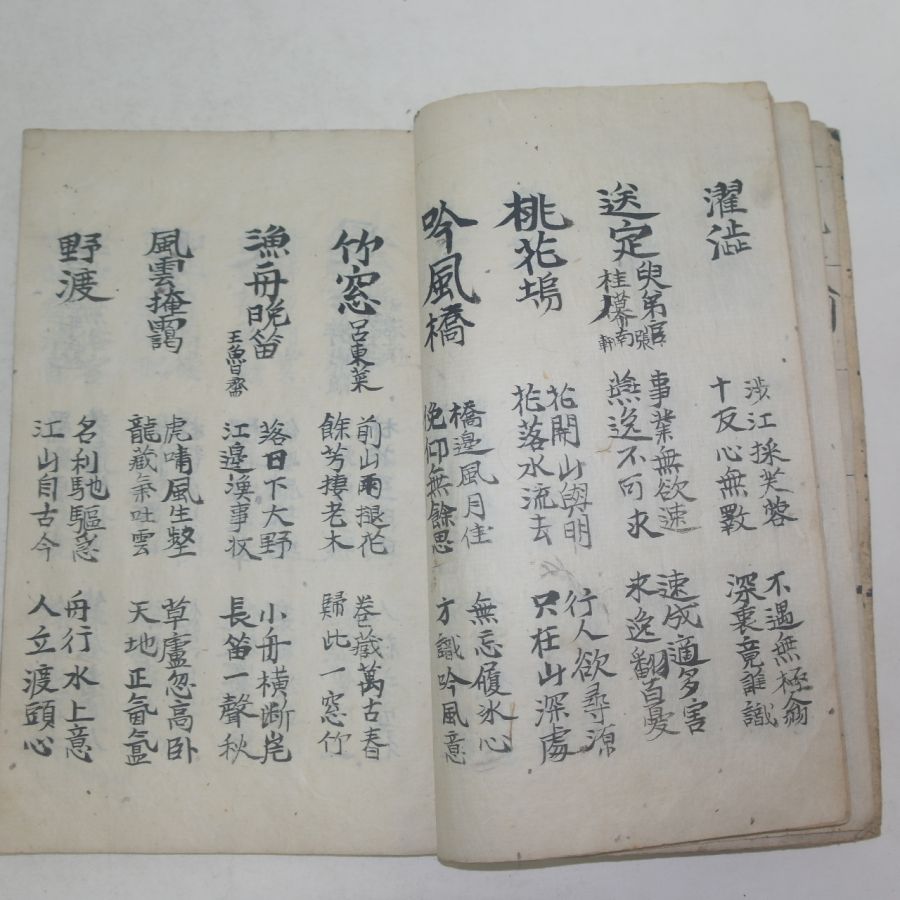 濯澁
涉江採芙蓉
十反心無斁
不遇無極翁
深衷竟誰識
送定叟弟官
桂
張南軒
事業無欲速
燕逸不可求
速成適多害
求逸翻百憂
桃花塢
花開山與明
花落水流去
行人欲尋源
只在山深處
吟風橋
橋邊風月佳
俛仰無餘思
無忘履冰心
方識吟風意
竹窓
呂東萊
前山雨褪花
餘芳摟老木
卷藏萬古春
歸此一窓竹
漁舟晚笛
王魯齋
落日下大野
江邊漁事收
小舟橫斷岸
長笛一聲秋
風雲掩靄
虎嘯風生壑
龍藏氣吐雲
草廬忽高卧
天地正氤氳
野渡
名利馳驅急
江山自古今
舟行水上意
人立渡頭心